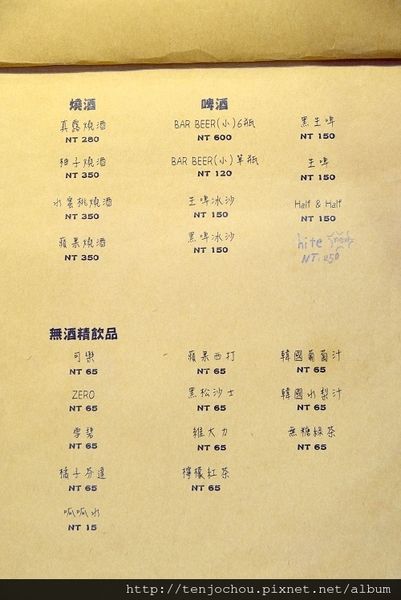 燒酒
真露燒酒
NT 280
柚子燒酒
NT 350
水蜜桃燒酒
NT 350
蘋果燒酒
NT 350
啤酒
BAR BEER(小)6瓶
NT 600
BAR BEER(小)單瓶
NT 120
生啤冰沙
NT 150
黑啤冰沙
NT 150
黑生啤
NT 150
生啤
NT 150
Half & Half
NT 150
hite
NT:250
無酒精飲品
可樂
NT 65
ZERO
NT 65
雪碧
NT 65
橘子芬達
NT 65
呱呱水
NT 15
蘋果西打
NT 65
黑松沙士
NT 65
維大力
NT 65
檸檬紅茶
NT 65
韓國葡萄汁
NT 65
韓國水梨汁
NT 65
無糖綠茶
NT 65
http://tenjochou.pixnet.net/album